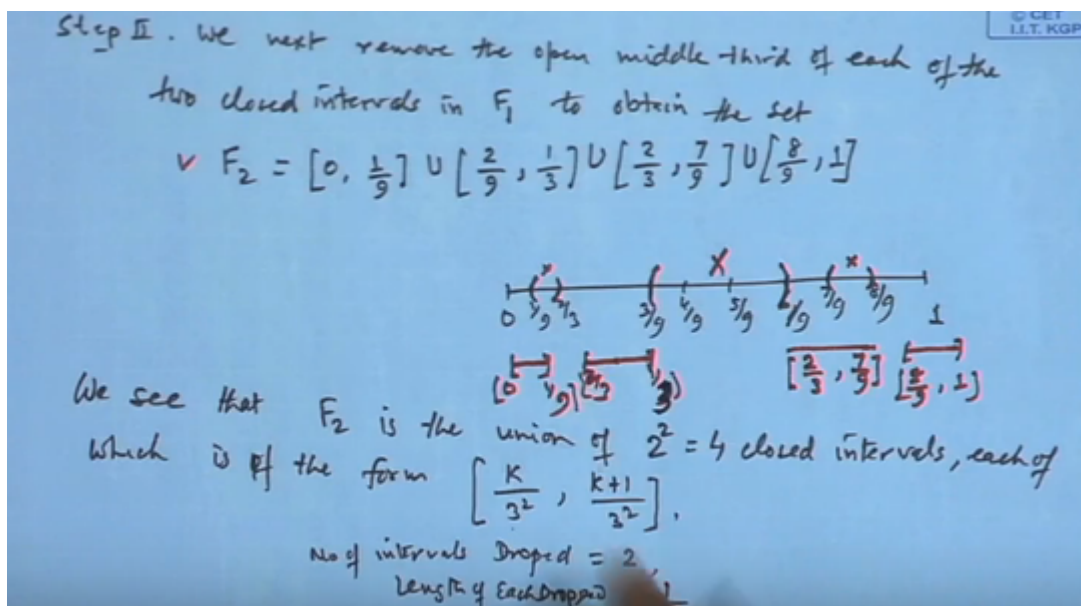 © CET
I.I.T. KGP
Step II. We next remove the open middle third of each of the
two closed intervals in F₁ to obtain the set
F₂ = [0, 1/9] U [2/9, 1/3] U [2/3, 7/9] U [8/9, 1]
x X x
0 1/9 2/3 3/9 4/9 5/9 6/9 7/9 8/9 1
[0 1/9] [2/9 1/3] [2/3, 7/9] [8/9, 1]
We see that F₂ is the union of 2² = 4 closed intervals, each of
which is of the form [K/3², K+1/3²].
No of intervals Droped = 2,
Length of Each Dropped 1